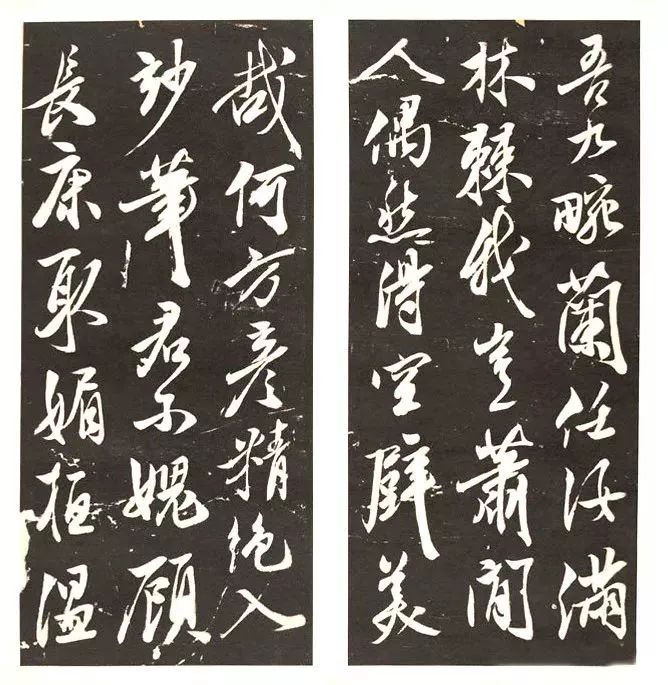 吾九畹蘭任汝滿
林棘我豈蕭閒
人偶然得空壁美
哉何方彥精絕入
玅筆君不愧顧
長康取媚桓溫